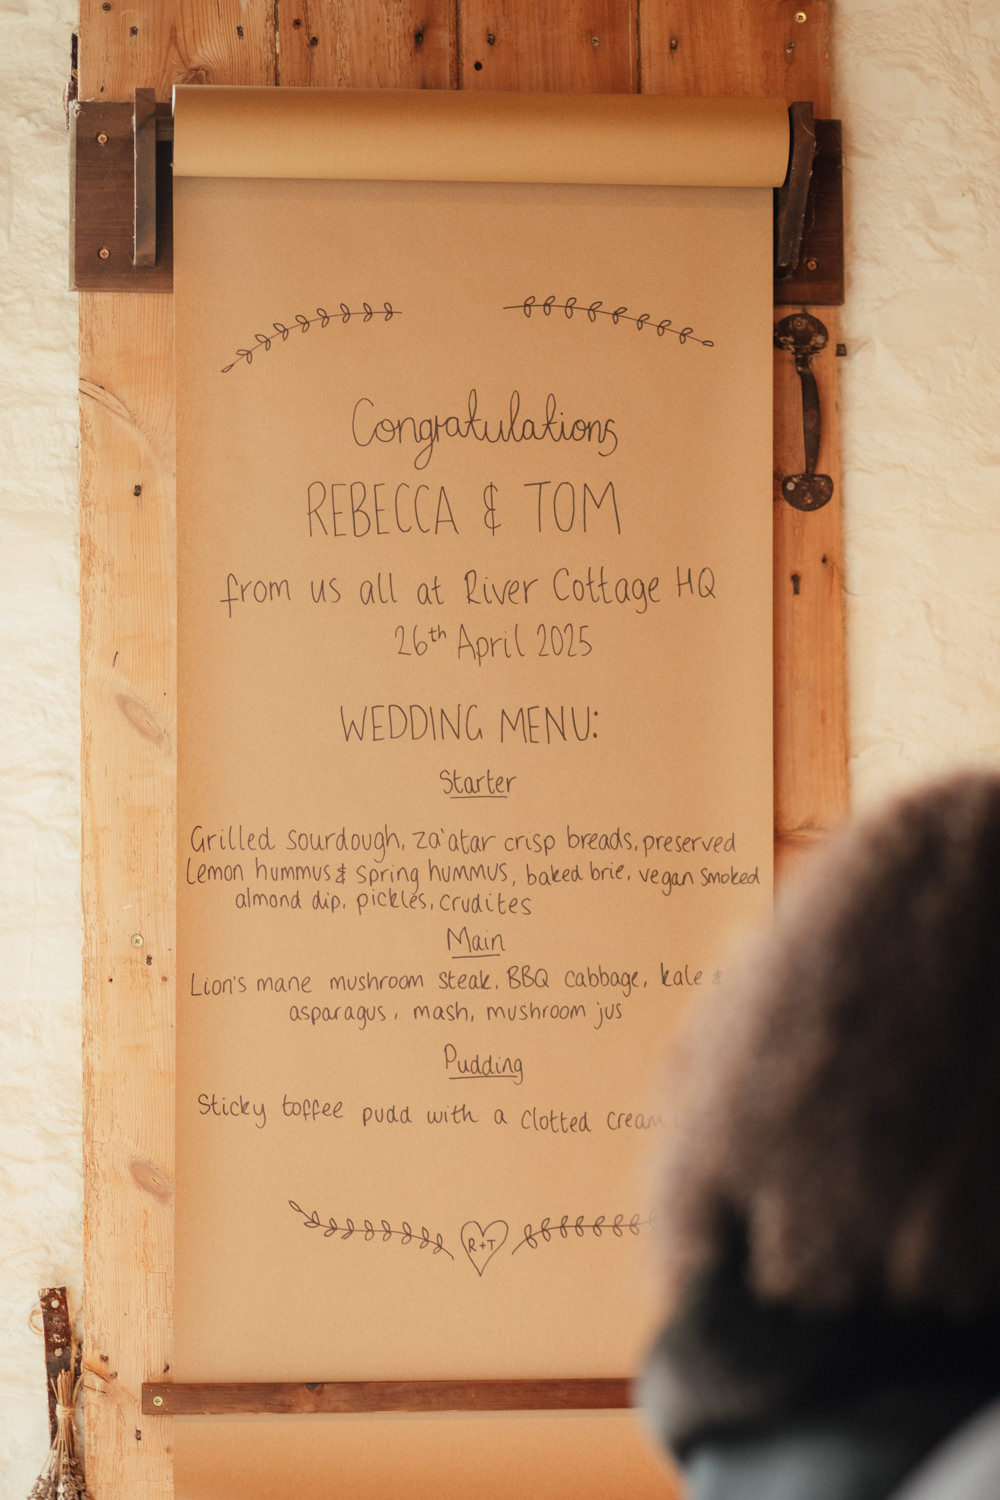 Congratulations
REBECCA & TOM
from us all at River Cottage HQ
26th April 2025
WEDDING MENU:
Starter
Grilled sourdough, za'atar crisp breads, preserved
Lemon hummus & Spring hummus, baked brie, vegan smoked
almond dip, pickles, crudites
Main
Lion's mane mushroom steak, BBQ cabbage, kale &
asparagus, mash, mushroom jus
Pudding
Sticky toffee pudd with a clotted cream
R+T